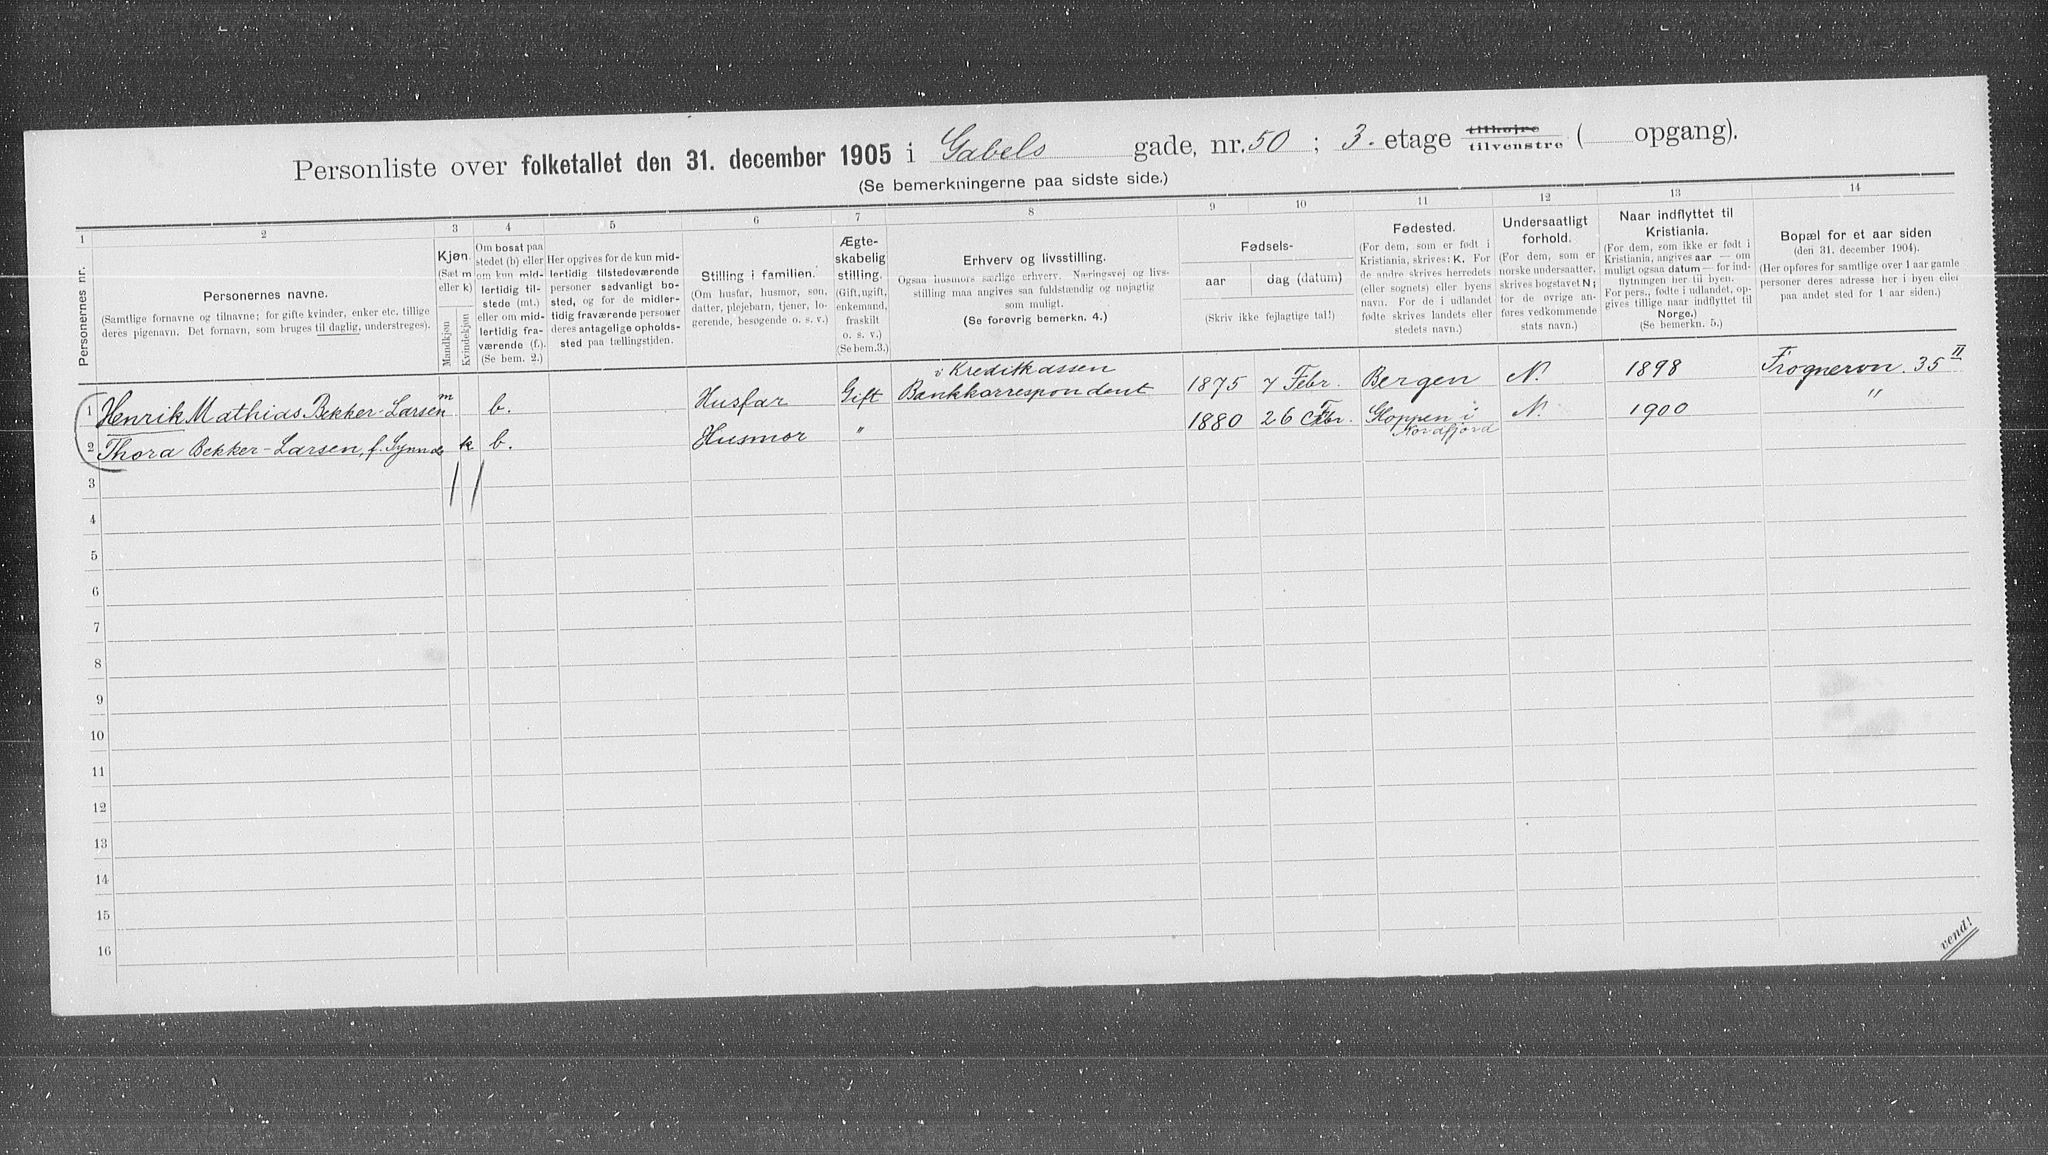 Personliste over folketallet den 31. december 1905 i Gabels gade, nr. 50 ; 3. etage tilhøjre tilvenstre ( opgang).
(Se bemerkningerne paa sidste side.)
1 2 3 4 5 6 7 8 9 10 11 12 13 14
Personernes nr.
Personernes navne.
(Samtlige fornavne og tilnavne; for gifte kvinder, enker etc. tillige
deres pigenavn. Det fornavn, som bruges til daglig, understreges).
Kjøn.
(Sæt m
eller k)
Mandkjøn
Kvindekjøn
Om bosat paa
stedet (b) eller
om kun mid-
lertidig til-
stede (mt.)
eller om mid-
lertidig fra-
værende (f.).
(Se bem. 2.)
Her opgives for de kun mid-
lertidig tilstedeværende
personer sædvanligt bo-
sted, og for de midler-
tidig fraværende personer
deres antagelige opholds-
sted paa tællingstiden.
Stilling i familien.
(Om husfar, husmor, søn,
datter, plejebarn, tjener, lo-
gerende, besøgende o. s. v.)
Ægte-
skabelig
stilling.
(Gift, ugift,
enkemand,
fraskilt
o. s. v.)
(Se bem.3.)
Erhverv og livsstilling.
Ogsaa husmors særlige erhverv. Næringsvej og livs-
stilling maa angives saa fuldstændig og nøjagtig
som muligt.
(Se forøvrig bemerkn. 4.)
Fødsels-
aar
dag (datum)
(Skriv ikke fejlagtige tal!)
Fødested.
(For dem, som er født i
Kristiania, skrives: K. For
de andre skrives herredets
(eller sognets) eller byens
navn. For de i udlandet
fødte skrives landets eller
stedets navn.)
Undersaatligt
forhold.
(For dem, som er
norske undersaatter,
skrives bogstavet N;
for de øvrige an-
føres vedkommende
stats navn.)
Naar indflyttet til
Kristiania.
(For dem, som ikke er født i
Kristiania, angives aar — om
muligt ogsaa datum — for ind-
flytningen her til byen.
For pers., fødte i udlandet, op-
gives tillige naar indflyttet til
Norge.)
(Se bemerkn. 5.)
Bopæl for et aar siden
(den 31. december 1904).
(Her opføres for samtlige over 1 aar gamle
personer deres adresse her i byen eller
paa andet sted for 1 aar siden.)
i Kreditkassen
1 Henrik Mathias Bekker-Larsen m b. Husfar Gift Bankkorrespondent 1875 7 Febr. Bergen N. 1898 Frognervn 35 II
2 Thora Bekker-Larsen, f. Synnes k b. Husmor " 1880 26 Febr. Gloppen i N. 1900 "
Nordfjord
3
4
5
6
7
8
9
10
11
12
13
14
15
16
vend!